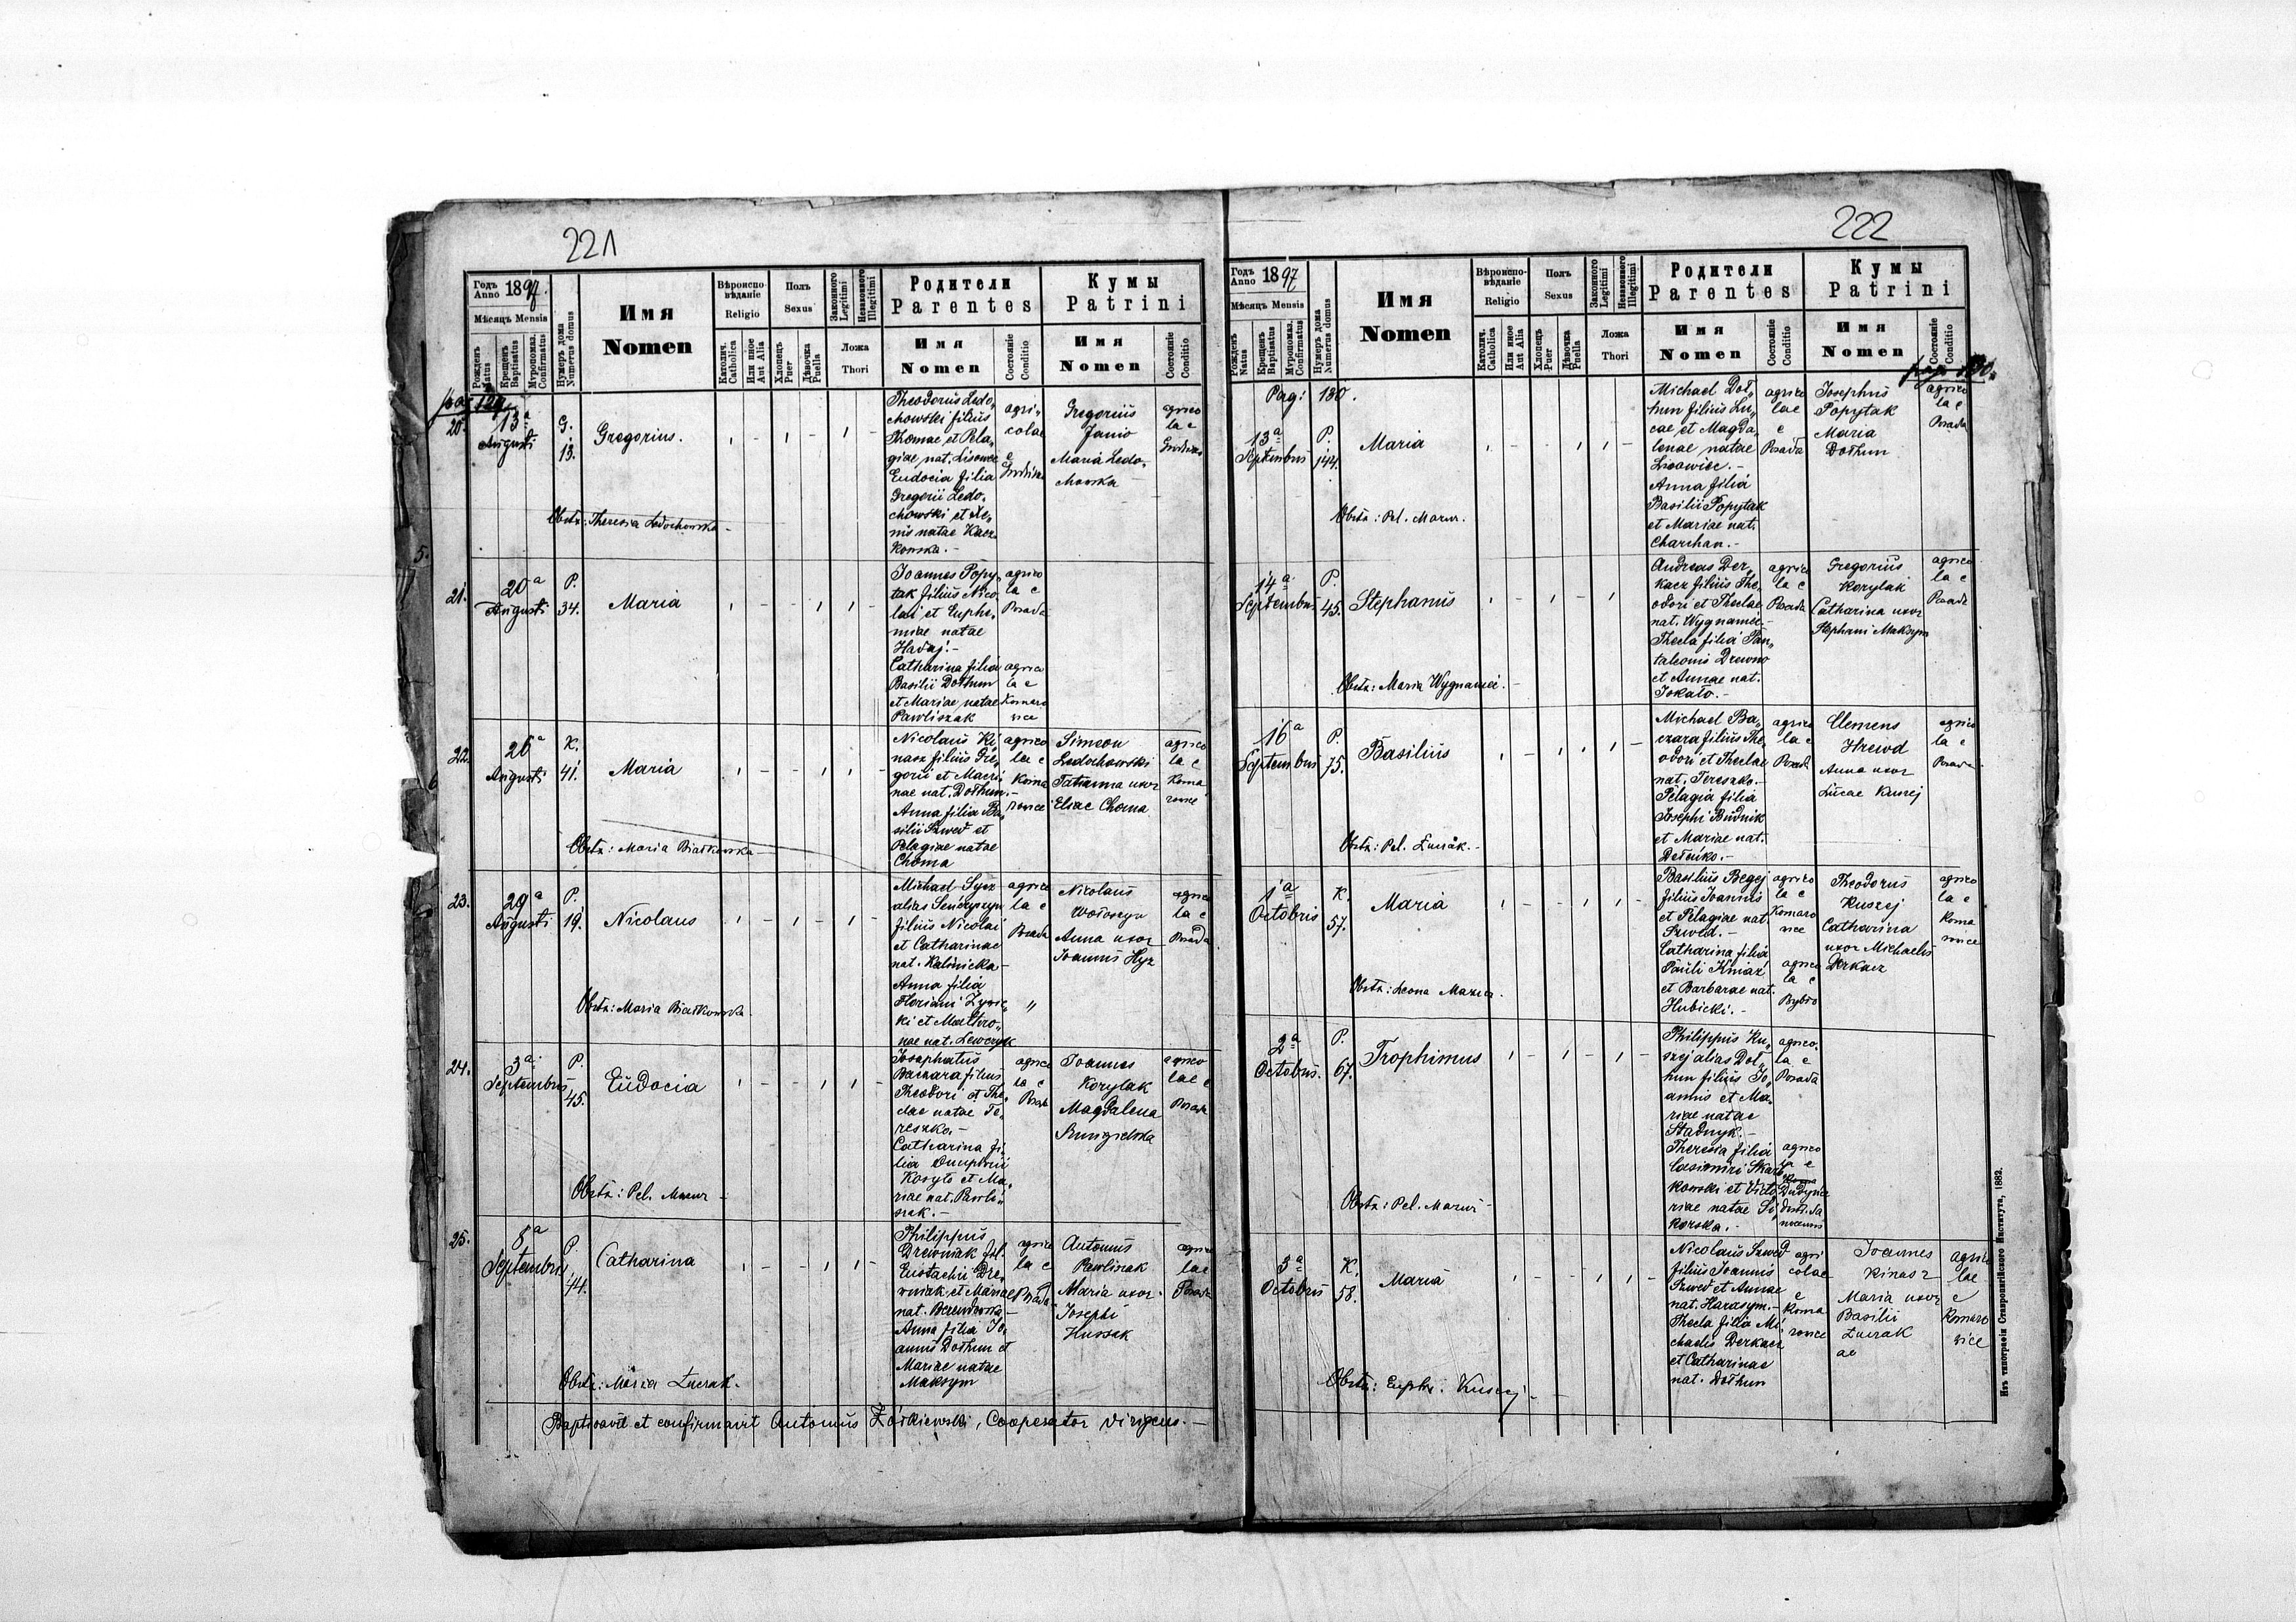 221
Годъ Anno 1897.
Мѣсяцъ Mensis
Рожденъ Natus
Крещенъ Baptisatus
Мѵропомаз. Confirmatus
Нумеръ дома Numerus domus
Имя
Nomen
Вѣроиспо-вѣданіе
Religio
Католич. Catholica
Или иное Aut Alia
Полъ
Sexus
Хлопецъ Puer
Дѣвочка Puella
Законного Legitimi
Незаконного Illegitimi
Ложа
Thori
Родители
Parentes
Имя
Nomen
Состояніе Conditio
Кумы
Patrini
Имя
Nomen
Состояніе Conditio
20. 13ª Augusti
G. 13.
Gregorius.
Theodorus Ledo,,
chowski filius
Thomae et Pela,,
giae nat. Lisowiec
Eudocia filia
Gregorii Ledo,
chowski et Xe,,
nis natae Kacz
kowska.-
agri,, colae
Gregorius
Janio
Maria Ledo,
chowska
agrico la e
Obstx: Theresia Ledochowska -
21. 20ª Augusti
P. 34.
Maria
Joannes Popy,,
tak filius Nico,
lai et Euphe,
miae natae
Hadaj.-
Catharina filia
Basilii Dołhun
et Mariae natae
Pawliszak
agrico la e Posada
agrico la e Komaro wice
22. 26ª Augusti
K. 41.
Maria
Nicolaus Ki
nasz filius Gre,
gorii et Macri
nae nat. Dołhun.-
Anna filia Ba
silii Szwed et
Pelagiae natae
Choma
agrico la e Koma rowice
Simeon
Ledochowski
Tatianna uxor
Eliae Choma
agrico la e Koma rowice
Obstx: Maria Białkowska -
23. 29ª Augusti
P. 19.
Nicolaus
Michael Sycz
alias Senczyszyn
filius Nicolai
et Catharinae
nat. Kalinicka -
Anna filia
Floriani Zywic,,
ki et Mathro,,
nae nat. Lewczyk
agrico la e Posada
"
Nicolaus
Wołoszyn
Anna uxor
Joannis Hyz
agrico la e Posada
Obstx: Maria Białkowska.
24. 3ª Septembris
P. 45.
Eudocia
Josaphatus
Baczara filius
Theodori et The,
clae natae Te,
reszko.-
Catharina fi,
lia Onuphrii
Kosyło et Ma,
riae nat. Pawli,,
szak.-
agrico la e Posada
Joannes
Korylak
Magdalena
agrico lae Posada
Obstx: Pel. Mazur -
25. 8ª Septembris
P. 44.
Catharina
Philippus
Drewniak fil.
Eustachii Dre,
wniak et Mariae
nat. Berendowska -
Anna filia Jo,
annis Dołhun et
Mariae natae
Maksym
agrico la e Posada
Antonius
Pawliszak
Maria uxor
Josephi
Hussak
agrico lae Posada
Obstx: Maria Łuczak.
Baptisavit et confirmavit Antonius Żółkiewski, Cooperator dirigens.-
222
Годъ Anno 1897
Мѣсяцъ Mensis
Рожденъ Natus
Крещенъ Baptisatus
Мѵропомаз. Confirmatus
Нумеръ дома Numerus domus
Имя
Nomen
Вѣроиспо-вѣданіе
Religio
Католич. Catholica
Или иное Aut Alia
Полъ
Sexus
Хлопецъ Puer
Дѣвочка Puella
Законного Legitimi
Незаконного Illegitimi
Ложа
Thori
Родители
Parentes
Имя
Nomen
Состояніе Conditio
Кумы
Patrini
Имя
Nomen
Состояніе Conditio
Pag: 130.
13ª Septembris
P. 144.
Maria
Michael Doł,
hun filius Lu,,
cae et Magda,
lenae natae
Lisowiec.-
Anna filia
Basilii Popytak
et Mariae nat.
Charchan.-
agrico lae e Posada
Josephus
Popytak
Maria
Dołhun
agrico la e Posada
Obstx: Pel. Mazur.
14ª Septembris
P. 45.
Stephanus
Andreas Der,,
kacz filius The,
odori et Theclae
nat. Wygnaniec.-
Thecla filia Pan,,
taleonis Drewno
et Annae nat.
Sokało.-
agrico la e Posada
Gregorius
Korylak
Catharina uxor
Stephani Maksym
agrico la e Posada
Obstx: Maria Wygnaniec.-
16ª Septembris
P. 75.
Basilius
Michael Ba,,
czara filius The,
odori et Theclae
nat. Tereszko.-
Pelagia filia
Josephi Budnik
et Mariae nat.
agrico la e Posada
Clemens
Hrewd
Anna uxor
Lucae Kuszej
agrico la e Posada
Obstx: Pel. Łuczak.-
1ª Octobris
K. 57.
Maria
Basilius Begej
filius Joannis
et Pelagiae nat.
Szwed.-
Catharina filia
Pauli Kniaź
et Barbarae nat.
Hubicki.-
agrico la e Komaro wice
agrico la e Rybno
Theodorus
Kuszej
Catharina
uxor Michaelis
Derkacz
agrico la e Koma rowice
2ª Octobris.
P. 67.
Trophimus
Philippus Ku,,
szej alias Doł,,
hun filius Jo,
annis et Ma,
riae natae
Stadnyk.-
Theresia filia
Casimiri Skar
kowski et Victo
riae natae Si,
korska.-
agrico. la e Posada
agrico la e
Obstx: Pel. Mazur -
3ª Octobris
K. 58.
Maria
Nicolaus Szwed
filius Joannis
Szwed et Annae
nat. Harasym.-
Thecla filia Mi,
chaelis Derkacz
et Catharinae
nat. Dołhun
agri colae e Koma rowice
Joannes
Kinasz
Maria uxor
Basilii
Łuczak
agrico lae e Komaro wice
Obstx: Euphr. Kuszej -
Изъ типографіи Ставропигійского Института, 1883.